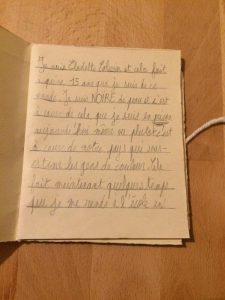 Je suis Claudette Colvin et cela fait
15 ans que je suis de ce
monde. Je suis NOIRE de peau et c'est
à cause de cela que je suis en prison
aujourd'hui même ou plutôt c'est
à cause de notre pays que sous-
estime les gens de couleur. Cela
fait maintenant quelques temps
que je me rends à l'école en